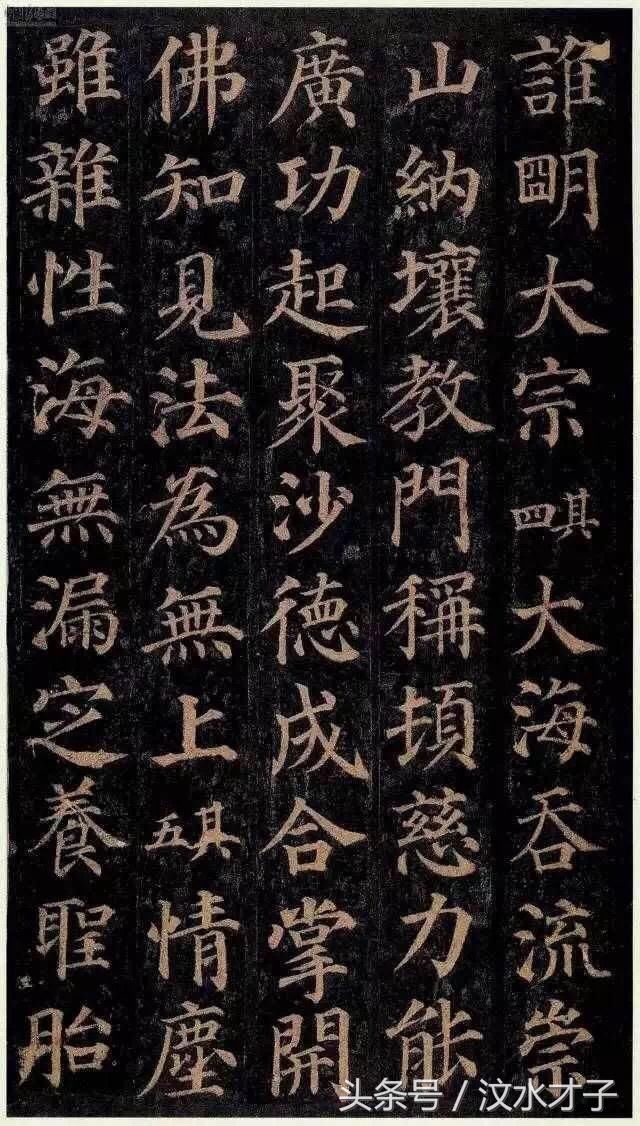 誰朙大宗其四大海吞流崇
山納壤教門稱頓慈力能
廣功起聚沙德成合掌開
佛知見法為無上其五情塵
雖雜性海無漏定養聖胎
头条号 / 汶水才子